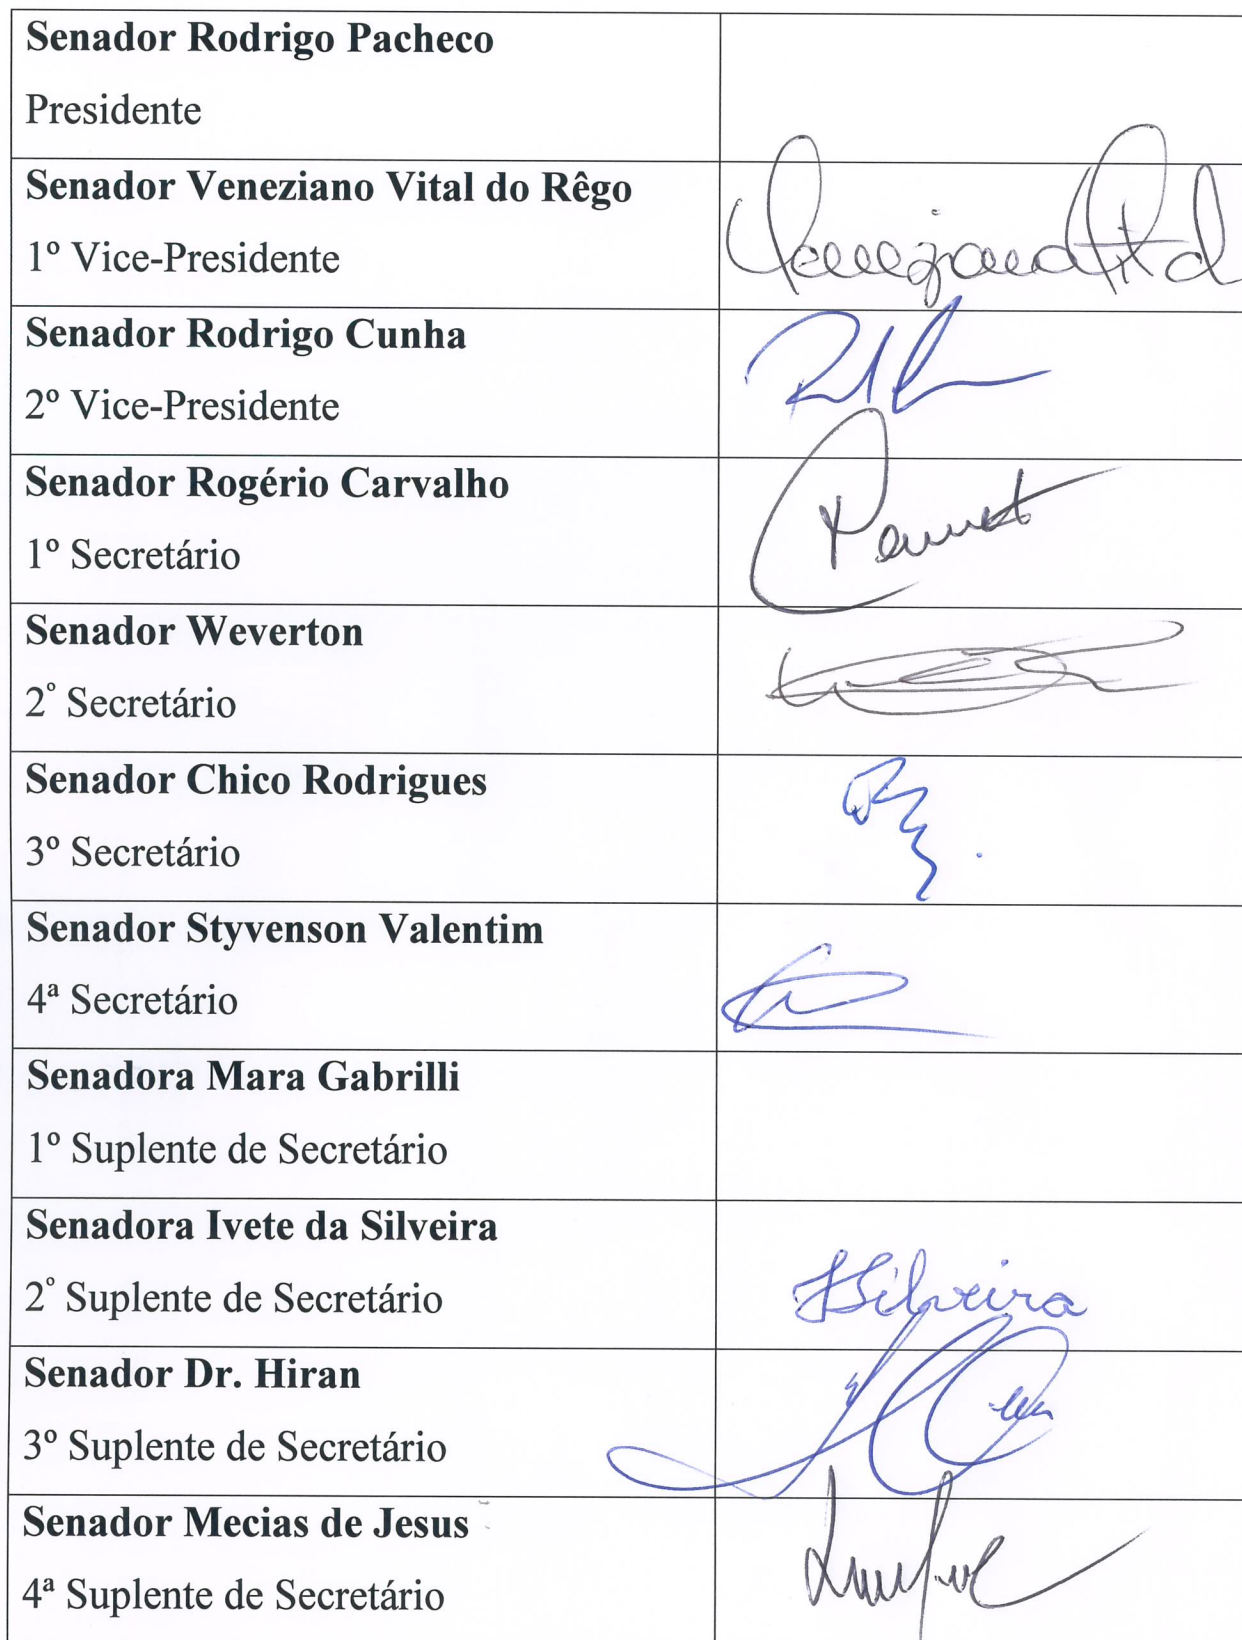 Senador Rodrigo Pacheco
Presidente
Senador Veneziano Vital do Rêgo
1º Vice-Presidente
Senador Rodrigo Cunha
2º Vice-Presidente
Senador Rogério Carvalho
1º Secretário
Senador Weverton
2º Secretário
Senador Chico Rodrigues
3º Secretário
Senador Styvenson Valentim
4ª Secretário
Senadora Mara Gabrilli
1º Suplente de Secretário
Senadora Ivete da Silveira
2º Suplente de Secretário
Silveira
Senador Dr. Hiran
3º Suplente de Secretário
Senador Mecias de Jesus
4ª Suplente de Secretário